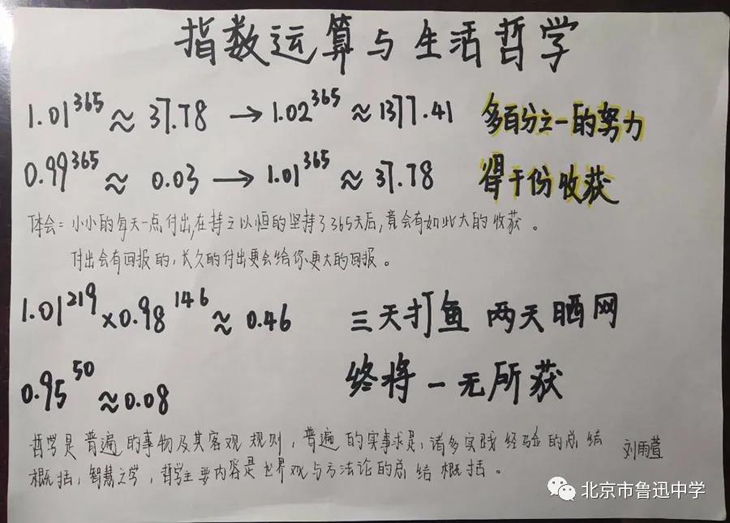 指数运算与生活哲学
1.01^365 ≈ 37.78 → 1.02^365 ≈ 1377.41 多百分之一的努力
0.99^365 ≈ 0.03 → 1.01^365 ≈ 37.78 得千份收获
体会：小小的每天一点付出，在持之以恒的坚持了365天后，竟会有如此大的收获。
付出会有回报的，长久的付出更会给你更大的回报。
1.01^219 × 0.98^146 ≈ 0.46 三天打鱼 两天晒网
0.95^50 ≈ 0.08 终将一无所获
哲学是普遍的事物及其客观规则，普遍的实事求是，诸多实践经验的总结
概括，智慧之学，哲学主要内容是世界观与方法论的总结概括。
刘雨萱
北京市鲁迅中学